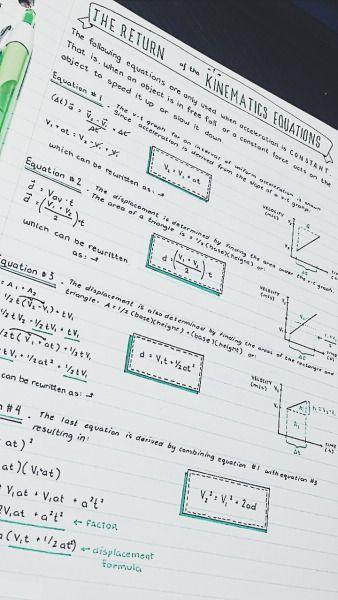 THE RETURN of the KINEMATICS EQUATIONS
The following equations are only used when acceleration is CONSTANT.
That is, when an object is in free fall or a constant force acts on the
object to speed it up or slow it down.
Equation #1 - The v-t graph for an interval of uniform acceleration is shown.
Since acceleration is derived from the slope of a v-t graph:
V₁ + at =
which can be rewritten as: →
V₂ = V₁ + at
Equation #2 - The displacement is determined by finding the area under the v-t graph.
The area of a triangle is = ½(base)(height) or:
d = Vav · t
d = (V₁ + V₂ / 2) t
which can be rewritten
as: →
d = (V₁ + V₂ / 2) t
Equation #3 - The displacement is also determined by finding the areas of the rectangle and
triangle. A = ½(base)(height) + (base)(height) or:
= A₁ + A₂
½t(V₂-V₁) + tV₁
½tV₂ - ½tV₁ + tV₁
½t(V₁ + at) + ½tV₁
tV₁ + ½at² + ½tV₁
can be rewritten as: →
d = V₁t + ½at²
#4 - The last equation is derived by combining equation #1 with equation #3
resulting in:
at)²
at)(V₁+at)
V₁at + V₁at + a²t²
2V₁at + a²t² ← FACTOR
a(V₁t + ½at²) ← displacement
formula
V₂² = V₁² + 2ad
VELOCITY
(m/s)
V₂
V₁
Δt
VELOCITY
(m/s)
V₂
V₁
Δt
VELOCITY
(m/s)
V₂
V₁
A₁
TIME
Δt